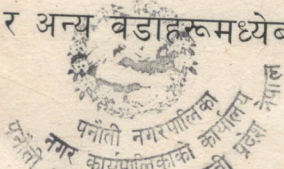 र अन्य वडाहरूमध्येब
पनौती नगरपालिका
नगर कार्यपालिकाको कार्यालय
पनौती
प्रदेश नेपाल